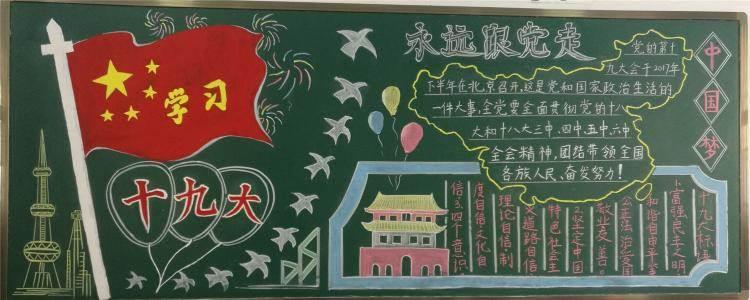 永远跟党走
学习
十九大
党的第十
九大会于2017年
下半年在北京召开,这是党和国家政治生活的
一件大事,全党要全面贯彻党的十八
大和十八大三中、四中、五中、六中
全会精神,团结带领全国
各族人民、奋发努力!
中国梦
十九大标语
1、富强民主文明
和谐自由平等
公正法治爱国
敬业友善。
2.坚定中国
特色社会主
义道路自信
理论自信、制
度自信、文化自
信3、四个意识